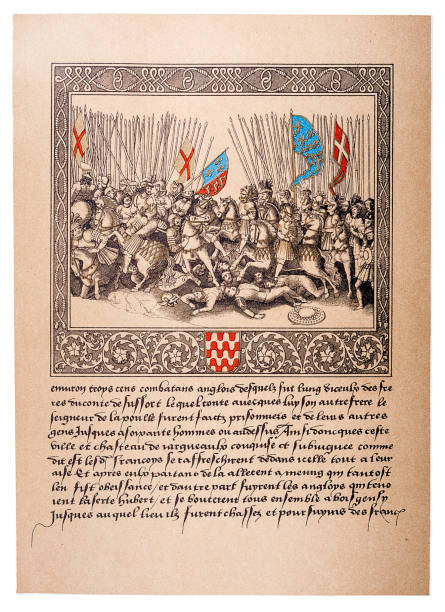 enuiron troys cens combatans anglois desquelz fut lung diceulx des fre
res du conte de suffort lequel conte auecques luy son autre frere le
seigneur de la poulle furent faitz prisonniers et de leurs autres
gens Jusques a soixante hommes ou au dessus Ainsi doncques ceste
ville et chasteau de iargueaulx conquise et subiuguee comme
dit est lesd francoys se raffreschirent dedans icelle tout a leur
aise Et apres eulx partans de la allerent a meung qui tantost
leur fist obeissance / et dautre part fuyrent les anglois qui teno
ient la ferte hubert / et se bouterent tous ensemble a boisgensy
Jusques au quel lieu ilz furent chassez et poursuyuis des francs